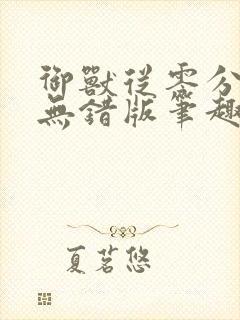 御獸從零分
無錯版筆趣
夏茗悠